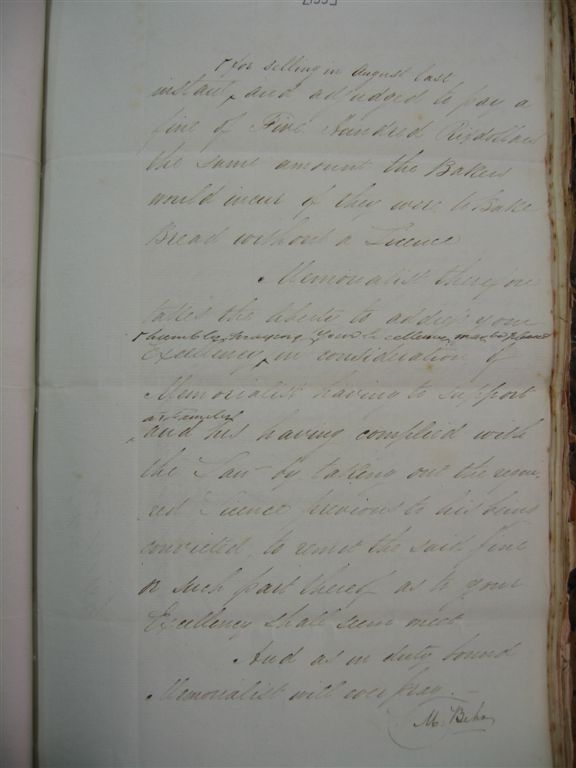 + for selling in August last
instant, and adjudged to pay a
fine of Five Hundred Rixdollars
the same amount the Bakers
would incur if they were to Bake
Bread without a Licence
Memorialist therefore
takes the liberty to address your
+ humbly praying Your Excellency may be pleased
Excellency, in consideration of
Memorialist having to support
a Family
and his having complied with
the Law by taking out the requi
red Licence previous to his being
convicted, to remit the said fine
or such part thereof as to your
Excellency shall seem meet
And as in duty bound
Memorialist will ever pray. —
M.